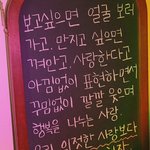 보고싶으면 얼굴 보러
가고, 만지고 싶으면
껴안고, 사랑한다고
아낌없이 표현하면서
꾸밈없이 깔깔 웃으며
행복을 나누는 사람.
우리 이전한 사람보다